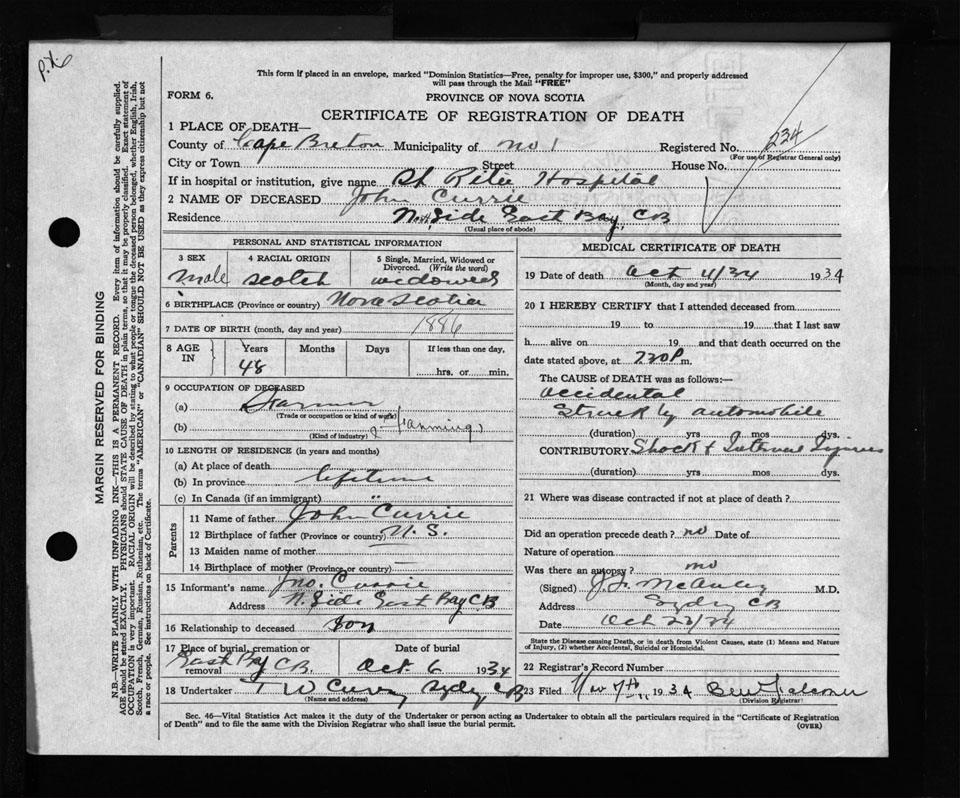 P.X.6
This form if placed in an envelope, marked "Dominion Statistics—Free, penalty for improper use, $300," and properly addressed
will pass through the Mail "FREE"
FORM 6.
PROVINCE OF NOVA SCOTIA
CERTIFICATE OF REGISTRATION OF DEATH
1 PLACE OF DEATH—
County of Cape Breton Municipality of No 1 Registered No. 234
(For use of Registrar General only)
City or Town Street House No.
If in hospital or institution, give name St Rita Hospital
2 NAME OF DECEASED John Currie
Residence North Side East Bay, CB
(Usual place of abode)
PERSONAL AND STATISTICAL INFORMATION
3 SEX 4 RACIAL ORIGIN 5 Single, Married, Widowed or
Divorced. (Write the word)
male scotch widowed
6 BIRTHPLACE (Province or country) Nova Scotia
7 DATE OF BIRTH (month, day and year) 1886
8 AGE IN Years Months Days If less than one day,
48 hrs. or min.
9 OCCUPATION OF DECEASED
(a) Farmer
(Trade or occupation or kind of work)
(b) farming
(Kind of industry)
10 LENGTH OF RESIDENCE (in years and months)
(a) At place of death
(b) In province lifetime
(c) In Canada (if an immigrant) "
Parents
11 Name of father John Currie
12 Birthplace of father (Province or country) N. S.
13 Maiden name of mother
14 Birthplace of mother (Province or country) —
15 Informant's name Jno. Currie
Address N. Side East Bay CB
16 Relationship to deceased son
17 Place of burial, cremation or removal Date of burial
East Bay C.B. Oct. 6 1934
18 Undertaker T W Curry Sydney CB
(Name and address)
MEDICAL CERTIFICATE OF DEATH
19 Date of death Oct 4/34 1934
(Month, day and year)
20 I HEREBY CERTIFY that I attended deceased from
19 to 19 that I last saw
h alive on 19 and that death occurred on the
date stated above, at 7.20 P m.
The CAUSE of DEATH was as follows:—
accidental
Struck by automobile
(duration) yrs mos dys.
CONTRIBUTORY Shock & Internal Injuries
(duration) yrs mos dys.
21 Where was disease contracted if not at place of death?
Did an operation precede death? no Date of
Nature of operation
Was there an autopsy? no
(Signed) J. J. McAuley M.D.
Address Sydney CB
Date Oct 22/34
State the Disease causing Death, or in death from Violent Causes, state (1) Means and Nature
of Injury, (2) whether Accidental, Suicidal or Homicidal.
22 Registrar's Record Number
23 Filed Nov 7th 1934
(Division Registrar)
Sec. 46—Vital Statistics Act makes it the duty of the Undertaker or person acting as Undertaker to obtain all the particulars required in the "Certificate of Registration
of Death" and to file the same with the Division Registrar who shall issue the burial permit. (OVER)
MARGIN RESERVED FOR BINDING
N.B.—WRITE PLAINLY WITH UNFADING INK—THIS IS A PERMANENT RECORD. Every item of information should be carefully supplied.
AGE should be stated EXACTLY. PHYSICIANS should STATE CAUSE OF DEATH in plain terms, so that it may be properly classified. Exact statement of
OCCUPATION is very important. RACIAL ORIGIN will be described by stating to what people or tongue the deceased person belonged, whether English, Irish,
Scotch, French, German, Russian, Ruthenian, etc. The terms "AMERICAN" or "CANADIAN" SHOULD NOT BE USED as they express citizenship but not
a race or people. See instructions on back of Certificate.